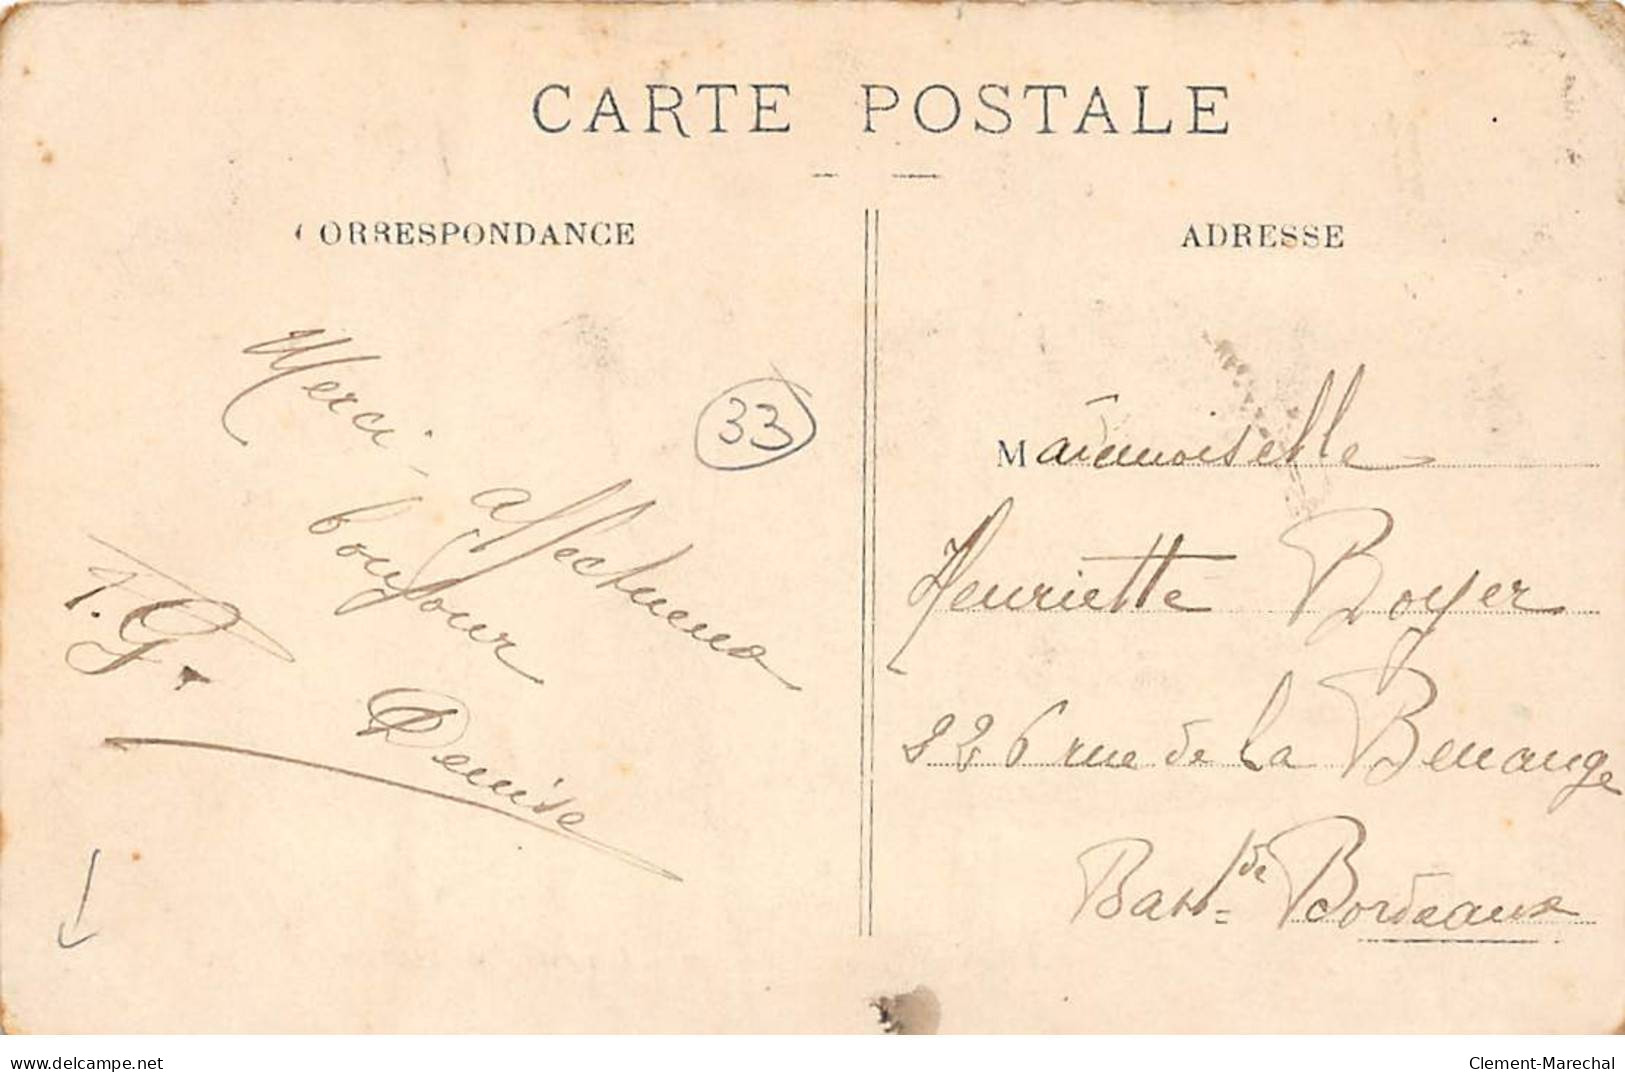 CARTE POSTALE
CORRESPONDANCE
ADRESSE
33
Merci,
affectueux
bonjour
G.
Denise
Mademoiselle
Henriette Boyer
226 rue de la Benauge
Bast de Bordeaux
www.delcampe.net
Clement-Marechal